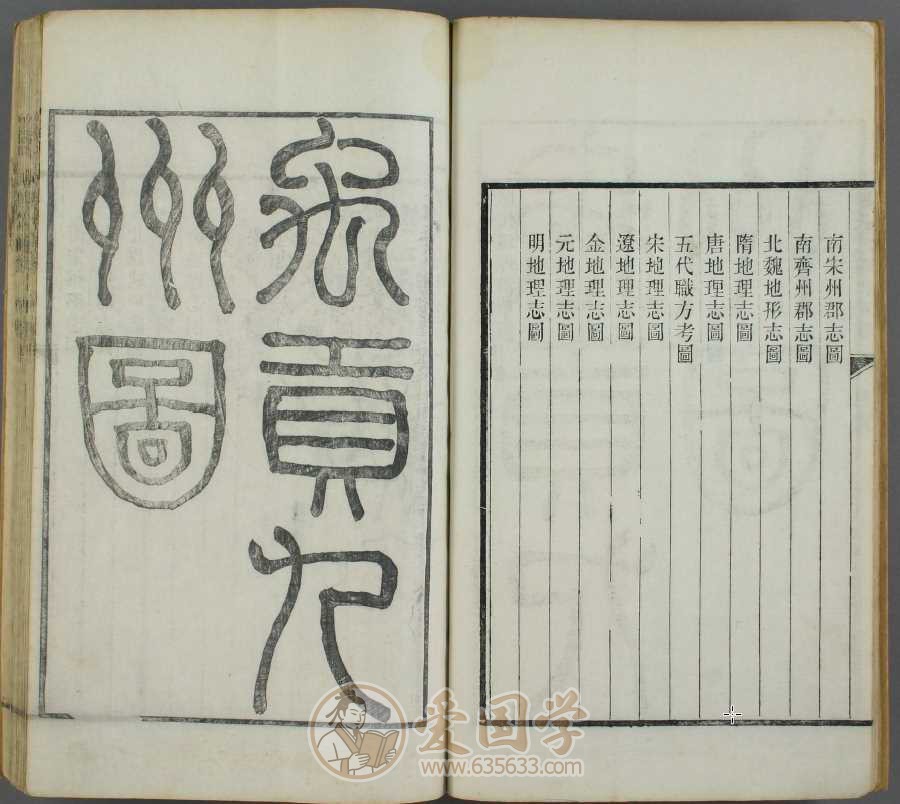 南宋州郡志圖
南齊州郡志圖
北魏地形志圖
隋地理志圖
唐地理志圖
五代職方考圖
宋地理志圖
遼地理志圖
金地理志圖
元地理志圖
明地理志圖
禹貢九
州圖
爱国学
www.635633.com